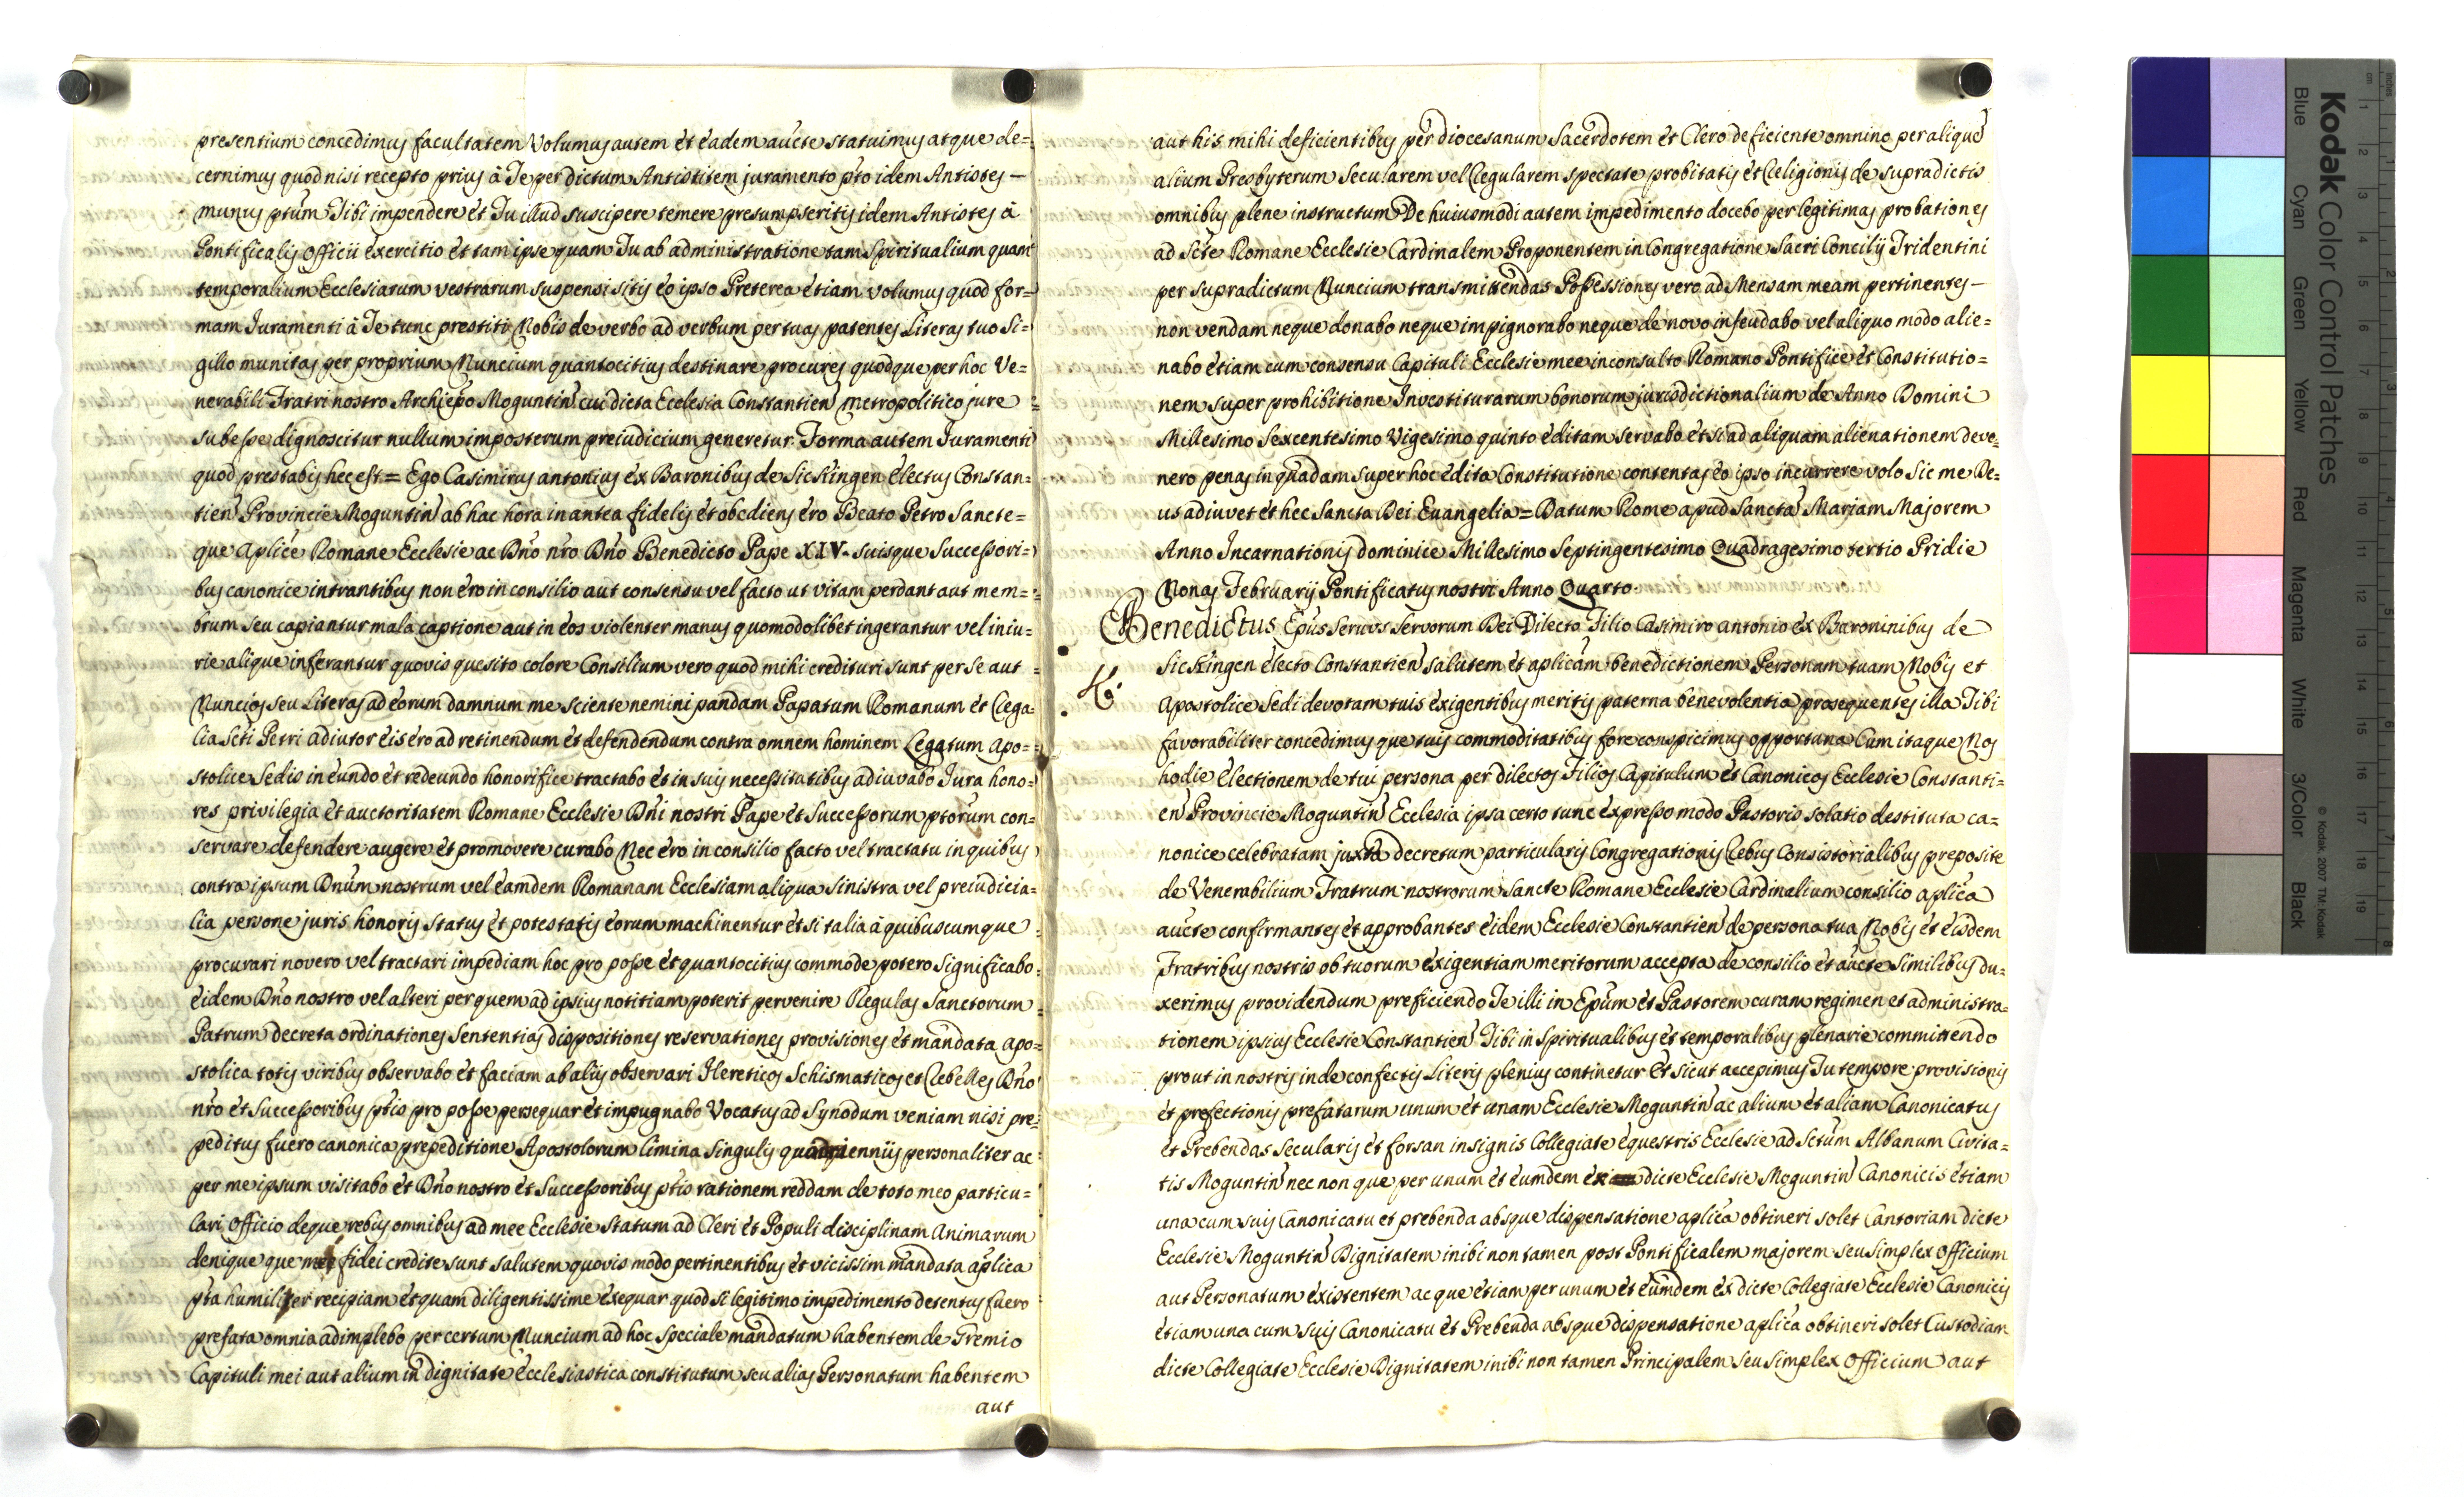 presentium concedimus facultatem Volumus autem et eadem aucte statuimus atque de=
cernimus quod nisi recepto prius à Te per dictum Antistitem juramento pto idem Antistes —
munus ptum Tibi impendere et Tu illud suscipere temere presumpseritis idem Antistes à
Pontificalis Officii exercitio et tam ipse quam Tu ab administratione tam Spiritualium quam
temporalium Ecclesiarum vestrarum suspensi sitis eo ipso Preterea etiam volumus quod for=
mam Juramenti à Te tunc prestiti Nobis de verbo ad verbum per tuas patentes Literas tuo Si=
gillo munitas per proprium Nuncium quantocitius destinare procures quodque per hoc Ve=
nerabili Fratri nostro Archiepo Moguntin cui dicta Ecclesia Constantien metropolitico jure
subesse dignoscitur nullum imposterum preiudicium generetur Forma autem Juramenti
quod prestabis hec est = Ego Casimirus antonius ex Baronibus de Sickingen electus Constan=
tien Provincie Moguntin ab hac hora in antea fidelis et obediens ero Beato Petro Sancte=
que Aplice Romane Ecclesie ac Dno nro Dno Benedicto Pape XIV. suisque Successori=
bus canonice intrantibus non ero in consilio aut consensu vel facto ut vitam perdant aut mem=
brum seu capiantur mala captione aut in eos violenter manus quomodolibet ingerantur vel iniu=
rie alique inferantur quovis quesito colore Consilium vero quod mihi credituri sunt per se aut
Nuncios seu Literas ad eorum damnum me sciente nemini pandam Papatum Romanum et Rega=
lia Scti Petri adiutor eis ero ad retinendum et defendendum contra omnem hominem Legatum Apo=
stolice Sedis in eundo et redeundo honorifice tractabo et in suis necessitatibus adiuvabo Jura hono=
res privilegia et auctoritatem Romane Ecclesie Dni nostri Pape et Successorum ptorum con=
servare defendere augere et promovere curabo Nec ero in consilio facto vel tractatu in quibus
contra ipsum Dnum nostrum vel eamdem Romanam Ecclesiam aliqua Sinistra vel preiudicia=
lia persone juris honoris status et potestatis eorum machinentur et si talia à quibuscumque
procurari novero vel tractari impediam hoc pro posse et quantocitius commode potero significabo
eidem Dno nostro vel alteri per quem ad ipsius notitiam poterit pervenire Regulas Sanctorum
Patrum decreta ordinationes Sententias dispositiones reservationes provisiones et mandata apo=
stolica totis viribus observabo et faciam ab aliis observari Hereticos Schismaticos et Rebelles Dno
nro et Successoribus ptis pro posse persequar et impugnabo Vocatus ad Synodum veniam nisi pre=
peditus fuero canonica prepeditione Apostolorum limina singulis quadrienniis personaliter ac
per me ipsum visitabo et Dno nostro et Successoribus ptis rationem reddam de toto meo particu=
lari Officio deque rebus omnibus ad mee Ecclesie Statum ad Cleri et Populi disciplinam Animarum
denique que mee fidei credite sunt salutem quovis modo pertinentibus et vicissim mandata aplica
pta humiliter recipiam et quam diligentissime exequar quod si legitimo impedimento detentus fuero
prefata omnia adimplebo per certum Nuncium ad hoc speciale mandatum habentem de Gremio
Capituli mei aut alium in dignitate ecclesiastica constitutum seu alias Personatum habentem
aut
aut his mihi deficientibus per diocesanum Sacerdotem et Clero deficiente omnino per alique
alium Presbyterum Secularem vel Regularem spectate probitatis et Religionis de supradictis
omnibus plene instructum De huiusmodi autem impedimento docebo per legitimas probationes
ad Scte Romane Ecclesie Cardinalem Proponentem in Congregatione Sacri Concilij Tridentini
per supradictum Nuncium transmittendas Possessiones vero ad Mensam meam pertinentes —
non vendam neque donabo neque impignorabo neque de novo infeudabo vel aliquo modo alie=
nabo etiam cum consensu Capituli Ecclesie mee inconsulto Romano Pontifice et Constitutio=
nem super prohibitione Investiturarum bonorum jurisdictionalium de Anno Domini
Millesimo Sexcentesimo Vigesimo quinto editam servabo et si ad aliquam alienationem deve=
nero penas in quadam super hoc edita Constitutione contentas eo ipso incurrere volo Sic me De=
us adiuvet et hec Sancta Dei Evangelia = Datum Rome apud Sancta Mariam Majorem
Anno Incarnationis dominice Millesimo Septingentesimo Quadragesimo tertio Pridie
Nonas Februarij Pontificatus nostri Anno Quarto.
Benedictus Epus Servus Servorum Dei Dilecto Filio Casimiro antonio ex Baroninibus de
Sickingen electo Constantien salutem et aplicam benedictionem Personam tuam Nobis et
Apostolice Sedi devotam tuis exigentibus meritis paterna benevolentia prosequentes illa Tibi
favorabiliter concedimus que tuis commoditatibus fore conspicimus opportuna Cum itaque Nos
hodie electionem de tui persona per dilectos Filios Capitulum et Canonicos Ecclesie Constanti=
en Provincie Moguntin Ecclesia ipsa certo tunc expresso modo Pastoris solatio destituta ca=
nonice celebratam juxta decretum particularis Congregationis Rebus Consistorialibus preposite
de Venerabilium Fratrum nostrorum Sancte Romane Ecclesie Cardinalium consilio aplica
aucte confirmantes et approbantes eidem Ecclesie Constantien de persona tua Nobis et eisdem
Fratribus nostris ob tuorum exigentiam meritorum accepta de consilio et aucte similibus du=
xerimus providendum preficiendo Te illi in Epum et Pastorem curam regimen et administra=
tionem ipsius Ecclesie Constantien Tibi in Spiritualibus et temporalibus plenarie committendo
prout in nostris inde confectis Literis plenius continetur Et sicut accepimus Tu tempore provisionis
et prefectionis prefatarum unum et unam Ecclesie Moguntin ac alium et aliam Canonicatus
et Prebendas Secularis et forsan insignis Collegiate equestris Ecclesie ad Sctum Albanum Civita=
tis Moguntin nec non que per unum et eumdem ex dicte Ecclesie Moguntin Canonicis etiam
una cum suis Canonicatu et prebenda absque dispensatione aplica obtineri solet Cantoriam dicte
Ecclesie Moguntin Dignitatem inibi non tamen post Pontificalem majorem seu simplex Officium
aut Personatum existentem ac que etiam per unum et eumdem ex dicte Collegiate Ecclesie Canonicis
etiam una cum suis Canonicatu et Prebenda absque dispensatione aplica obtineri solet Custodiam
dicte Collegiate Ecclesie Dignitatem inibi non tamen Principalem seu simplex Officium aut
Kodak Color Control Patches
© Kodak, 2007 TM: Kodak
Blue Cyan Green Yellow Red Magenta White 3/Color Black
inches 1 2 3 4 5 6 7 8
cm 1 2 3 4 5 6 7 8 9 10 11 12 13 14 15 16 17 18 19